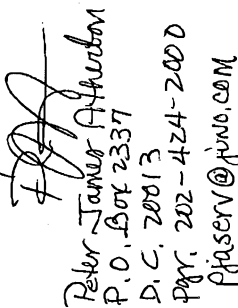 Peter James Atherton
P.O. Box 2337
D.C. 20013
pgr. 202-424-2000
pjaserv@juno.com